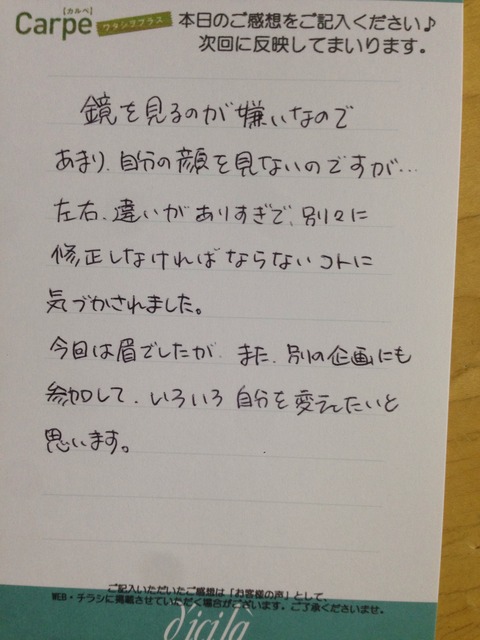 Carpe
【カルペ】
ワタシヲプラス
本日のご感想をご記入ください♪
次回に反映してまいります。
鏡を見るのが嫌いなので
あまり、自分の顔を見ないのですが…
左右、違いがありすぎで、別々に
修正しなければならないコトに
気づかされました。
今回は眉でしたが、また、別の企画にも
参加して、いろいろ自分を変えたいと
思います。
ご記入いただいたご感想は「お客様の声」として、
WEB・チラシに掲載させていただく場合がございます。ご了承くださいませ。